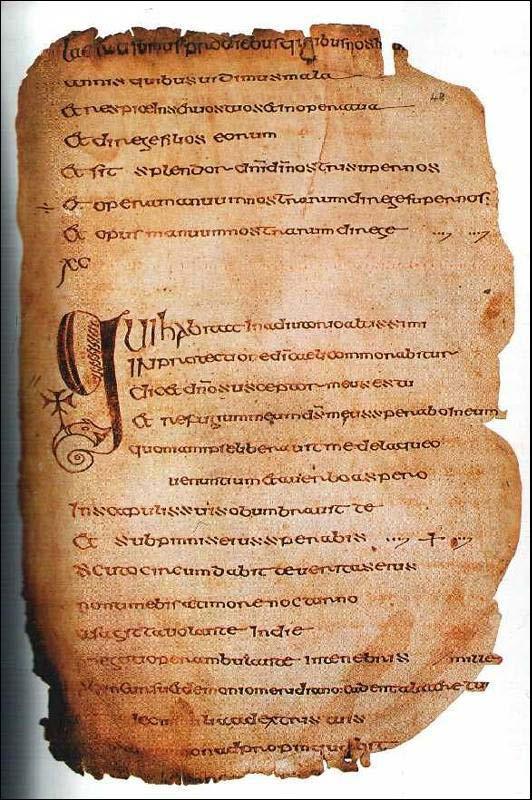 laetati sumus pro diebus quibus nos
annis quibus uidimus mala
48
et respice in seruos tuos et in opera tua
et dirige filios eorum
et sit splendor dn̄i dī nostri super nos
÷ et opera manuum nostrarum dirige super nos;
et opus manuum nostrarum dirige
xc
Qui habitat in adiutorio altissimi
in protectione dī caeli commorabitur
dicet dn̄o susceptor meus es tu
et refugium meum ds̄ meus sperabo in eum
quoniam ipse liberauit me de laqueo
uenantium et a uerbo aspero
in scapulis suis obumbrauit te
et sub pinnis eius sperabis
scuto circumdabit te ueritas eius
non timebis a timore nocturno
a sagitta uolante in die
negotio perambulante in tenebris mille
et demonio meridiano cadent a latere tu
milia a dextris tuis
non adpropinquabit